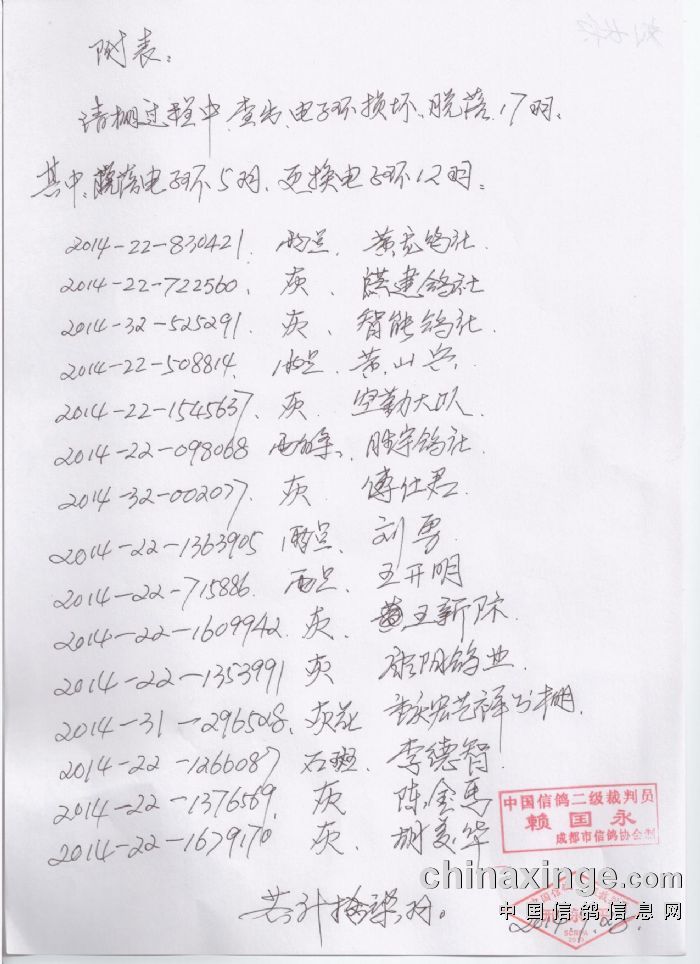 附表：
请棚过程中，查出、电子环损坏、脱落17羽。
其中、脱落电子环5羽、更换电子环12羽。
2014-22-830421. 雨点、黄 鸽社
2014-22-722560、灰、 建鸽社
2014-32-525291、灰、智能鸽社
2014-22-508814. 雨点、黄山兵
2014-22-1545637、灰、空勤大队
2014-22-098068 胜宇鸽社
2014-32-002077、灰、傅仕君
2014-22-1363905 雨点、刘勇
2014-22-715886、雨点、王开明
2014-22-1609942、灰、王新际
2014-22-1353991 灰、阳鸽业
2014-31-296508、灰花 宏艺祥公棚
2014-22-1266087 石斑、李德智
2014-22-1376569、灰 陈金马
2014-22-1679170、灰、胡 华
中国信鸽二级裁判员
赖国永
成都市信鸽协会制
chinaxinge.com
中国信鸽信息网